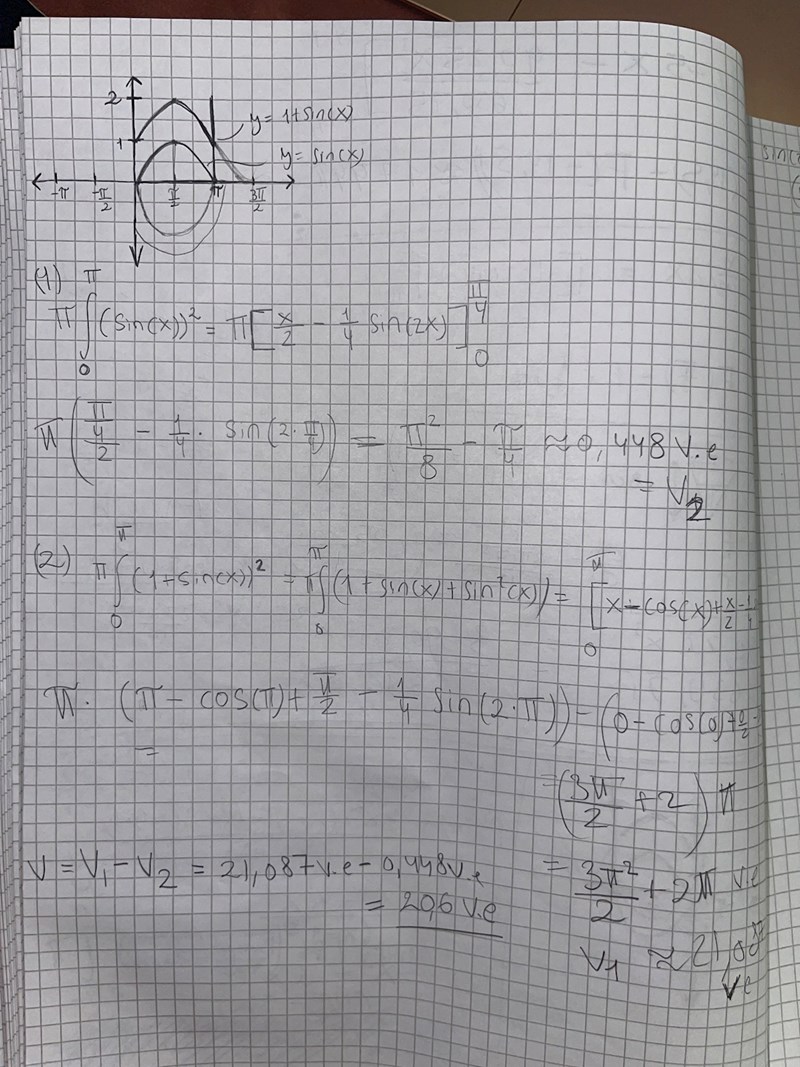 2
1
y = 1+sin(x)
y = sin(x)
-π -π/2 π/2 π 3π/2
sin(
(1)
π ∫₀^π (sin(x))² = π[x/2 - 1/4 sin(2x)]₀^(π/4)
π((π/4)/2 - 1/4 · sin(2·π/4)) = π²/8 - π/4 ≈ 0,448 v.e
= V₂
(2) π ∫₀^π (1+sin(x))² = π ∫₀^π (1 + sin(x) + sin²(x)) = [x - cos(x) + x/2 - 1/4
π · (π - cos(π) + π/2 - 1/4 sin(2·π)) - (0 - cos(0) + 0/2 -
=
= (3π/2 + 2) π
V = V₁ - V₂ = 21,087 v.e - 0,448 v.e
= 3π²/2 + 2π v.e
= 20,6 v.e
V₁ ≈ 21,08
ve